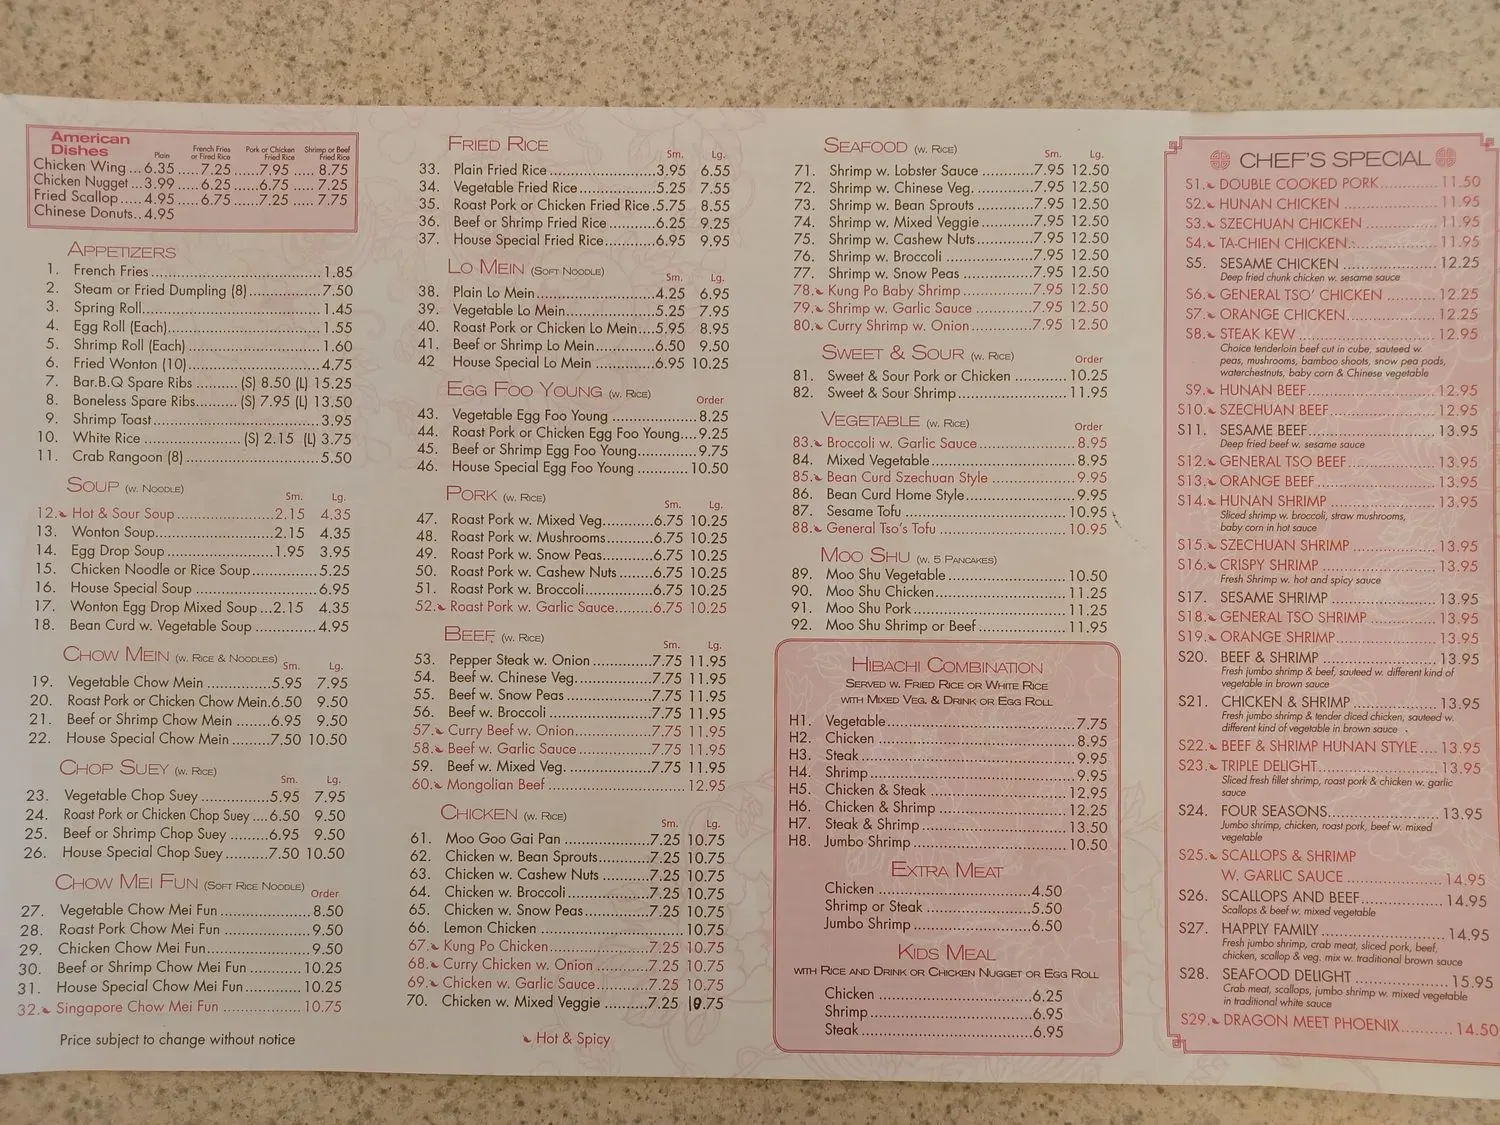 American
Dishes
Plain
French Fries or Fried Rice
Pork or Chicken Fried Rice
Shrimp or Beef Fried Rice
Chicken Wing ... 6.35 ..... 7.25 ...... 7.95 ..... 8.75
Chicken Nugget ... 3.99 .... 6.25 ...... 6.75 ..... 7.25
Fried Scallop ..... 4.95 ..... 6.75 ...... 7.25 ..... 7.75
Chinese Donuts.. 4.95
APPETIZERS
1. French Fries ... 1.85
2. Steam or Fried Dumpling (8) ... 7.50
3. Spring Roll ... 1.45
4. Egg Roll (Each) ... 1.55
5. Shrimp Roll (Each) ... 1.60
6. Fried Wonton (10) ... 4.75
7. Bar.B.Q Spare Ribs ... (S) 8.50 (L) 15.25
8. Boneless Spare Ribs ... (S) 7.95 (L) 13.50
9. Shrimp Toast ... 3.95
10. White Rice ... (S) 2.15 (L) 3.75
11. Crab Rangoon (8) ... 5.50
SOUP (W. NOODLE)
Sm. Lg.
12. Hot & Sour Soup ... 2.15 4.35
13. Wonton Soup ... 2.15 4.35
14. Egg Drop Soup ... 1.95 3.95
15. Chicken Noodle or Rice Soup ... 5.25
16. House Special Soup ... 6.95
17. Wonton Egg Drop Mixed Soup ... 2.15 4.35
18. Bean Curd w. Vegetable Soup ... 4.95
CHOW MEIN (W. RICE & NOODLES)
Sm. Lg.
19. Vegetable Chow Mein ... 5.95 7.95
20. Roast Pork or Chicken Chow Mein. 6.50 9.50
21. Beef or Shrimp Chow Mein ... 6.95 9.50
22. House Special Chow Mein ... 7.50 10.50
CHOP SUEY (W. RICE)
Sm. Lg.
23. Vegetable Chop Suey ... 5.95 7.95
24. Roast Pork or Chicken Chop Suey ... 6.50 9.50
25. Beef or Shrimp Chop Suey ... 6.95 9.50
26. House Special Chop Suey ... 7.50 10.50
CHOW MEI FUN (SOFT RICE NOODLE)
Order
27. Vegetable Chow Mei Fun ... 8.50
28. Roast Pork Chow Mei Fun ... 9.50
29. Chicken Chow Mei Fun ... 9.50
30. Beef or Shrimp Chow Mei Fun ... 10.25
31. House Special Chow Mei Fun ... 10.25
32. Singapore Chow Mei Fun ... 10.75
Price subject to change without notice
FRIED RICE
Sm. Lg.
33. Plain Fried Rice ... 3.95 6.55
34. Vegetable Fried Rice ... 5.25 7.55
35. Roast Pork or Chicken Fried Rice . 5.75 8.55
36. Beef or Shrimp Fried Rice ... 6.25 9.25
37. House Special Fried Rice ... 6.95 9.95
LO MEIN (SOFT NOODLE)
Sm. Lg.
38. Plain Lo Mein ... 4.25 6.95
39. Vegetable Lo Mein ... 5.25 7.95
40. Roast Pork or Chicken Lo Mein ... 5.95 8.95
41. Beef or Shrimp Lo Mein ... 6.50 9.50
42 House Special Lo Mein ... 6.95 10.25
EGG FOO YOUNG (W. RICE)
Order
43. Vegetable Egg Foo Young ... 8.25
44. Roast Pork or Chicken Egg Foo Young ... 9.25
45. Beef or Shrimp Egg Foo Young ... 9.75
46. House Special Egg Foo Young ... 10.50
PORK (W. RICE)
Sm. Lg.
47. Roast Pork w. Mixed Veg ... 6.75 10.25
48. Roast Pork w. Mushrooms ... 6.75 10.25
49. Roast Pork w. Snow Peas ... 6.75 10.25
50. Roast Pork w. Cashew Nuts ... 6.75 10.25
51. Roast Pork w. Broccoli ... 6.75 10.25
52. Roast Pork w. Garlic Sauce ... 6.75 10.25
BEEF (W. RICE)
Sm. Lg.
53. Pepper Steak w. Onion ... 7.75 11.95
54. Beef w. Chinese Veg ... 7.75 11.95
55. Beef w. Snow Peas ... 7.75 11.95
56. Beef w. Broccoli ... 7.75 11.95
57. Curry Beef w. Onion ... 7.75 11.95
58. Beef w. Garlic Sauce ... 7.75 11.95
59. Beef w. Mixed Veg. ... 7.75 11.95
60. Mongolian Beef ... 12.95
CHICKEN (W. RICE)
Sm. Lg.
61. Moo Goo Gai Pan ... 7.25 10.75
62. Chicken w. Bean Sprouts ... 7.25 10.75
63. Chicken w. Cashew Nuts ... 7.25 10.75
64. Chicken w. Broccoli ... 7.25 10.75
65. Chicken w. Snow Peas ... 7.25 10.75
66. Lemon Chicken ... 10.75
67. Kung Po Chicken ... 7.25 10.75
68. Curry Chicken w. Onion ... 7.25 10.75
69. Chicken w. Garlic Sauce ... 7.25 10.75
70. Chicken w. Mixed Veggie ... 7.25 10.75
Hot & Spicy
SEAFOOD (W. RICE)
Sm. Lg.
71. Shrimp w. Lobster Sauce ... 7.95 12.50
72. Shrimp w. Chinese Veg. ... 7.95 12.50
73. Shrimp w. Bean Sprouts ... 7.95 12.50
74. Shrimp w. Mixed Veggie ... 7.95 12.50
75. Shrimp w. Cashew Nuts ... 7.95 12.50
76. Shrimp w. Broccoli ... 7.95 12.50
77. Shrimp w. Snow Peas ... 7.95 12.50
78. Kung Po Baby Shrimp ... 7.95 12.50
79. Shrimp w. Garlic Sauce ... 7.95 12.50
80. Curry Shrimp w. Onion ... 7.95 12.50
SWEET & SOUR (W. RICE)
Order
81. Sweet & Sour Pork or Chicken ... 10.25
82. Sweet & Sour Shrimp ... 11.95
VEGETABLE (W. RICE)
Order
83. Broccoli w. Garlic Sauce ... 8.95
84. Mixed Vegetable ... 8.95
85. Bean Curd Szechuan Style ... 9.95
86. Bean Curd Home Style ... 9.95
87. Sesame Tofu ... 10.95
88. General Tso's Tofu ... 10.95
MOO SHU (W. 5 PANCAKES)
89. Moo Shu Vegetable ... 10.50
90. Moo Shu Chicken ... 11.25
91. Moo Shu Pork ... 11.25
92. Moo Shu Shrimp or Beef ... 11.95
HIBACHI COMBINATION
SERVED W. FRIED RICE OR WHITE RICE
WITH MIXED VEG. & DRINK OR EGG ROLL
H1. Vegetable ... 7.75
H2. Chicken ... 8.95
H3. Steak ... 9.95
H4. Shrimp ... 9.95
H5. Chicken & Steak ... 12.95
H6. Chicken & Shrimp ... 12.25
H7. Steak & Shrimp ... 13.50
H8. Jumbo Shrimp ... 10.50
EXTRA MEAT
Chicken ... 4.50
Shrimp or Steak ... 5.50
Jumbo Shrimp ... 6.50
KIDS MEAL
WITH RICE AND DRINK OR CHICKEN NUGGET OR EGG ROLL
Chicken ... 6.25
Shrimp ... 6.95
Steak ... 6.95
CHEF'S SPECIAL
S1. DOUBLE COOKED PORK ... 11.50
S2. HUNAN CHICKEN ... 11.95
S3. SZECHUAN CHICKEN ... 11.95
S4. TA-CHIEN CHICKEN ... 11.95
S5. SESAME CHICKEN ... 12.25
Deep fried chunk chicken w. sesame sauce
S6. GENERAL TSO' CHICKEN ... 12.25
S7. ORANGE CHICKEN ... 12.25
S8. STEAK KEW ... 12.95
Choice tenderloin beef cut in cube, sauteed w.
peas, mushrooms, bamboo shoots, snow pea pods,
waterchestnuts, baby corn & Chinese vegetable
S9. HUNAN BEEF ... 12.95
S10. SZECHUAN BEEF ... 12.95
S11. SESAME BEEF ... 13.95
Deep fried beef w. sesame sauce
S12. GENERAL TSO BEEF ... 13.95
S13. ORANGE BEEF ... 13.95
S14. HUNAN SHRIMP ... 13.95
Sliced shrimp w. broccoli, straw mushrooms,
baby corn in hot sauce
S15. SZECHUAN SHRIMP ... 13.95
S16. CRISPY SHRIMP ... 13.95
Fresh Shrimp w. hot and spicy sauce
S17. SESAME SHRIMP ... 13.95
S18. GENERAL TSO SHRIMP ... 13.95
S19. ORANGE SHRIMP ... 13.95
S20. BEEF & SHRIMP ... 13.95
Fresh jumbo shrimp & beef, sauteed w. different kind of
vegetable in brown sauce
S21. CHICKEN & SHRIMP ... 13.95
Fresh jumbo shrimp & tender diced chicken, sauteed w.
different kind of vegetable in brown sauce
S22. BEEF & SHRIMP HUNAN STYLE .... 13.95
S23. TRIPLE DELIGHT ... 13.95
Sliced fresh fillet shrimp, roast pork & chicken w. garlic
sauce
S24. FOUR SEASONS ... 13.95
Jumbo shrimp, chicken, roast pork, beef w. mixed
vegetable
S25. SCALLOPS & SHRIMP
W. GARLIC SAUCE ... 14.95
S26. SCALLOPS AND BEEF ... 14.95
Scallops & beef w. mixed vegetable
S27. HAPPLY FAMILY ... 14.95
Fresh jumbo shrimp, crab meat, sliced pork, beef,
chicken, scallop & veg. mix w. traditional brown sauce
S28. SEAFOOD DELIGHT ... 15.95
Crab meat, scallops, jumbo shrimp w. mixed vegetable
in traditional white sauce
S29. DRAGON MEET PHOENIX ... 14.50